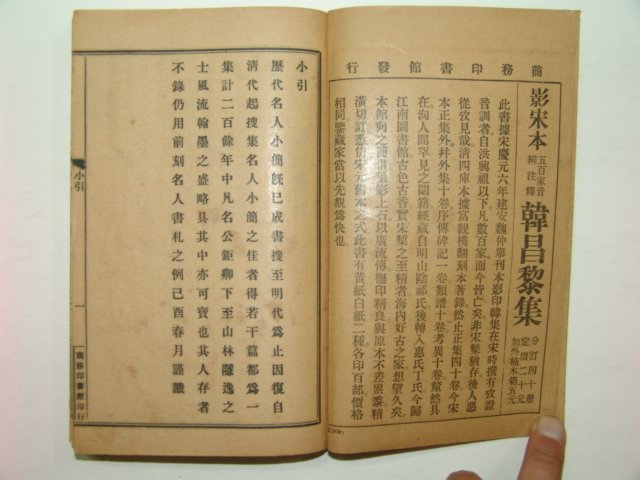 商務印書館發行
影宋本
五百家音
辨注釋
韓昌黎集
分訂四十册
定價二十元
加外補木箱五元
此書據宋慶元六年建安魏仲舉刊本影印韓集在宋時撰有攷證
音訓者自洪興祖以下凡數百家而今皆亡矣非宋槧猶存後人惡
從攷見哉清四庫本據富觀樓翻刻本著錄然止正集四十卷今宋
本正集外并外集十卷序傳碑記一卷類譜十卷考異十卷釐然具
在洵人間罕見之閟籍經藏自明山陰祁氏後轉入惠氏丁氏今歸
江南圖書館古色古香實宋槧之至精者海內好古之家想望久矣
本館向之商借攝影上石以廣流傳橅印精良與原本不差累黍精
潢切訂悉仿宋本之式此書有黃紙白紙二種各印百部價格
相同鑒藏家當以先覩爲快也
小引
歷代名人小簡旣已成書搜至明代爲止因復自
淸代起搜集名人小簡之佳者得若干篇都爲一
集計二百餘年中凡名公鉅卿下至山林隱逸之
士風流翰墨之盛略具其中亦可寶也其人存者
不錄仍用前刻名人書札之例己酉春月謹識
小引
一
商務印書館印行